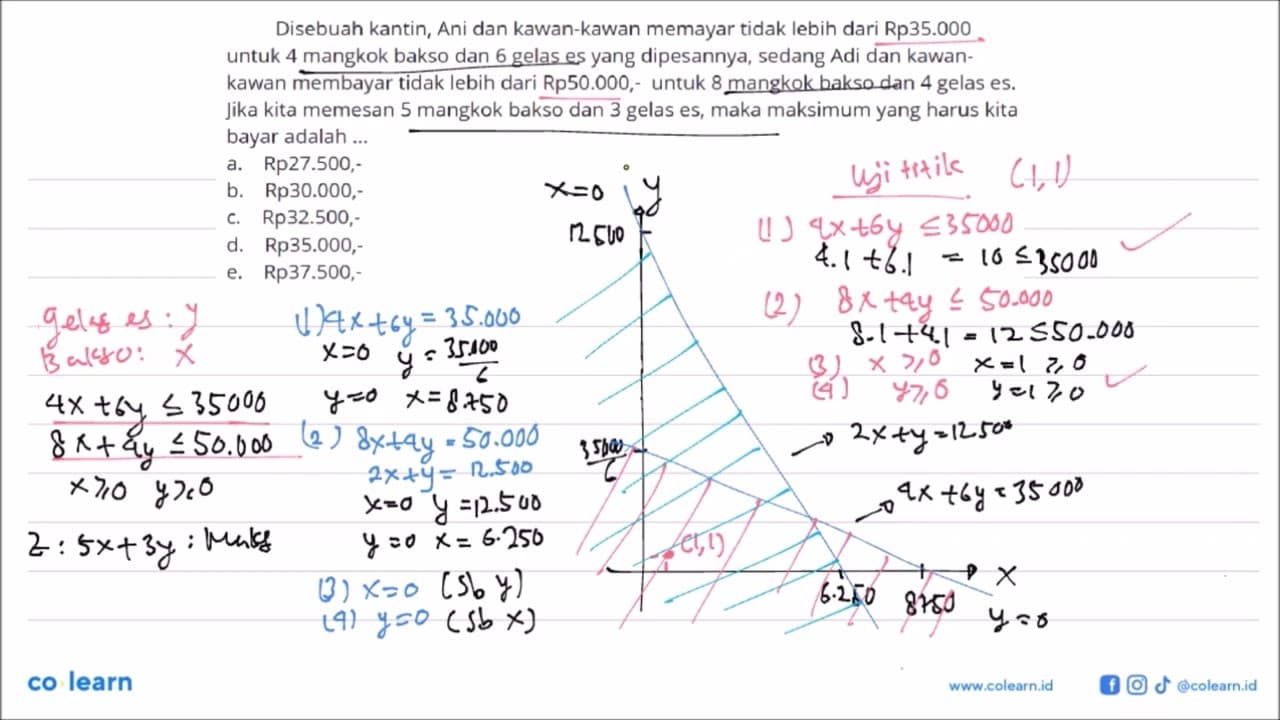 Disebuah kantin, Ani dan kawan-kawan memayar tidak lebih dari Rp35.000
untuk 4 mangkok bakso dan 6 gelas es yang dipesannya, sedang Adi dan kawan-
kawan membayar tidak lebih dari Rp50.000,- untuk 8 mangkok bakso dan 4 gelas es.
Jika kita memesan 5 mangkok bakso dan 3 gelas es, maka maksimum yang harus kita
bayar adalah ...
a. Rp27.500,-
b. Rp30.000,-
c. Rp32.500,-
d. Rp35.000,-
e. Rp37.500,-
gelas es : y
Bakso : x
4x + 6y ≤ 35000
8x + 4y ≤ 50.000
x ≥ 0 y ≥ 0
Z : 5x + 3y : Maks
(1) 4x + 6y = 35.000
x=0 y = 35.000/6
y=0 x = 8750
(2) 8x + 4y = 50.000
2x + y = 12.500
x=0 y = 12.500
y=0 x = 6.250
(3) x=0 (sb y)
(4) y=0 (sb x)
x=0 y
12500
35000/6
(1,1)
6.250 8750
x
y=0
2x + y = 12.500
4x + 6y = 35000
Uji titik (1,1)
(1) 4x + 6y ≤ 35000
4.1 + 6.1 = 10 ≤ 35000
(2) 8x + 4y ≤ 50.000
8.1 + 4.1 = 12 ≤ 50.000
(3) x ≥ 0 x = 1 ≥ 0
(4) y ≥ 0 y = 1 ≥ 0
co learn
www.colearn.id
@colearn.id